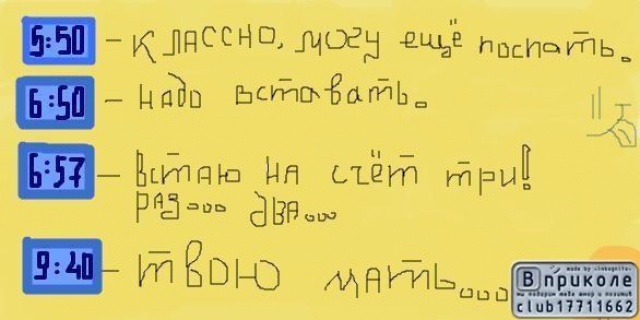 5:50 – КЛАССНО, МОГУ ещё поспать.
6:50 – НАДО вставать.
6:57 – Встаю НА счёт три!
РАЗ... ДВА...
9:40 – ТВОЮ МАТЬ...
Вприколе
club17711662